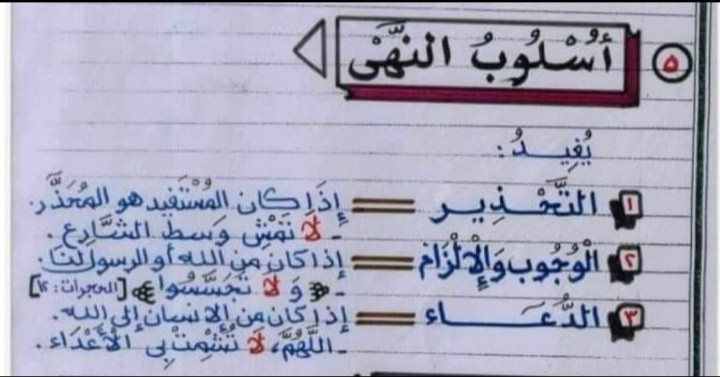 ٥ أُسْلُوبُ النَّهْيِ
يُفِيدُ:
١ التَّحْذِير == إِذَا كان المُسْتَفِيد هو المُحَذَّر.
- لَا تَمْشِ وَسطَ الشَّارِع.
٢ الْوُجُوب وَالْإِلْزَام == إذا كان من الله أو الرسول لنا.
- ﴿وَ لَا تَجَسَّسُوا﴾ [الحجرات: ١٢]
٣ الدُّعَـــاء == إذا كان من الإنسان إلى الله.
- اللَّهُمَّ، لَا تُشْمِتْ بِي الْأَعْدَاء.